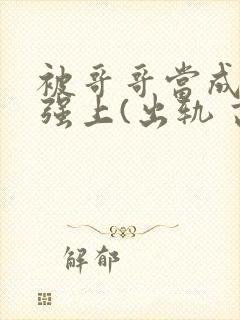 被哥哥當成
强上(出轨
解郁